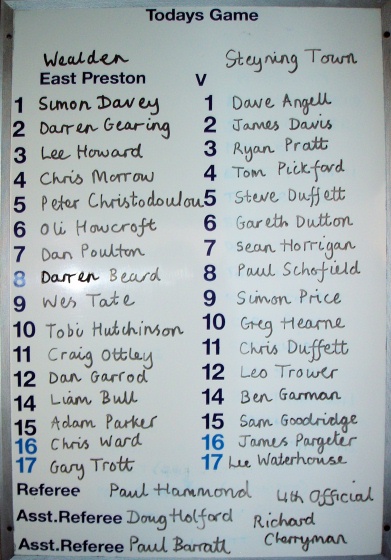 Todays Game
Wealden Steyning Town
East Preston V
1 Simon Davey 1 Dave Angell
2 Darren Gearing 2 James Davis
3 Lee Howard 3 Ryan Pratt
4 Chris Morrow 4 Tom Pickford
5 Peter Christodoulou 5 Steve Duffett
6 Oli Howcroft 6 Gareth Dutton
7 Dan Poulton 7 Sean Horrigan
8 Darren Beard 8 Paul Schofield
9 Wes Tate 9 Simon Price
10 Tobi Hutchinson 10 Greg Hearne
11 Craig Ottley 11 Chris Duffett
12 Dan Garrod 12 Leo Trower
14 Liam Bull 14 Ben Garman
15 Adam Parker 15 Sam Goodridge
16 Chris Ward 16 James Pargeter
17 Gary Trott 17 Lee Waterhouse
Referee Paul Hammond 4th Official
Asst.Referee Doug Holford Richard
Asst.Referee Paul Barratt Cherryman